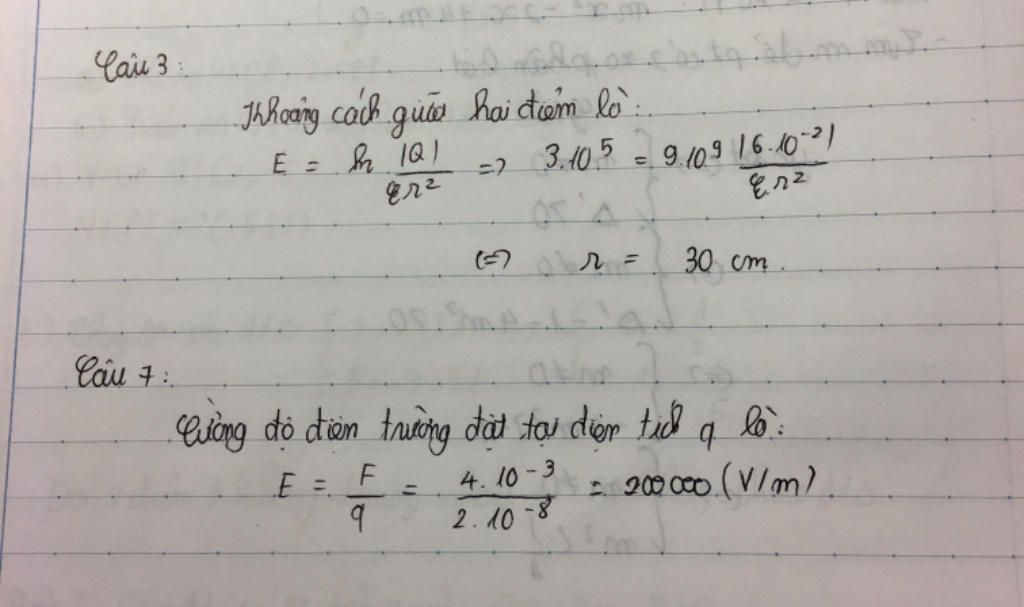 Câu 3:
Khoảng cách giữa hai điểm là:
E = k |Q| / εr² => 3.10⁵ = 9.10⁹ |6.10⁻²| / ε.r²
<=> r = 30 cm.
Câu 7:
Cường độ điện trường đặt tại điện tích q là:
E = F / q = 4.10⁻³ / 2.10⁻⁸ = 200000 (V/m)